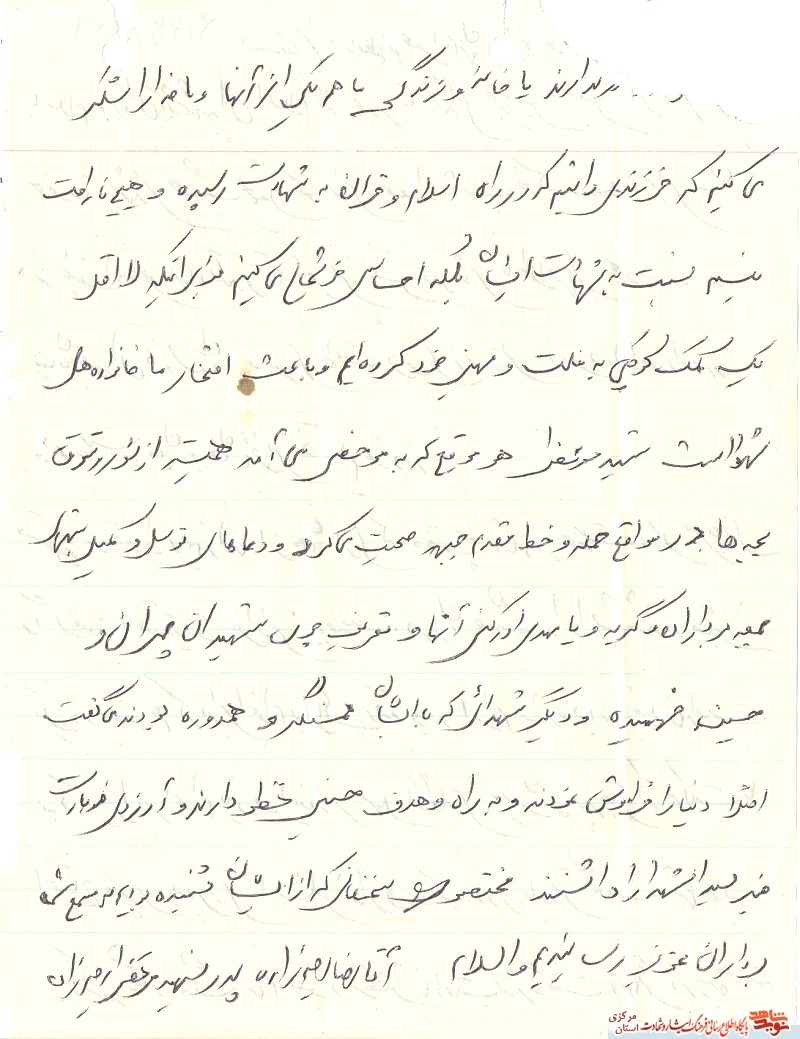 ندارند یا خانه و زندگی با هر یکی از آنها و ما خدا را شکر
می کنیم که فرزندی داشتیم که در راه اسلام و قرآن به شهادت رسیده و هیچ ناراحت
نیستیم نسبت به شهادت ایشان بلکه احساس خوشحالی می کنیم برای اینکه لااقل
یک کمک کوچکی به ملت و میهن خود کرده ایم و باعث افتخار ما خانواده های
شهدا است شهید هر موقع که به مرخصی می آمد همیشه از شور و شوق
بچه ها در مواقع حمله و خط مقدم جبهه صحبت می کرد و دعاهای توسل و کمیل شبهای
جمعه برادران و گریه و یا مهدی ادرکنی آنها و تعریف چون شهیدان چمران و
حسین فهمیده و دیگر شهدائی که با ایشان همسنگر و همدوره بودند می گفت
دنیا را فراموش نمودند و به راه و هدف حسینی دارند و آرزوی
سیدالشهدا را داشتند سخنانی که از ایشان شنیده بودیم به سمع شما
برادران عزیز رساندیم والسلام پدر شهید
نوید شاهد
پایگاه اطلاع رسانی فرهنگ ایثار و شهادت
استان مرکزی